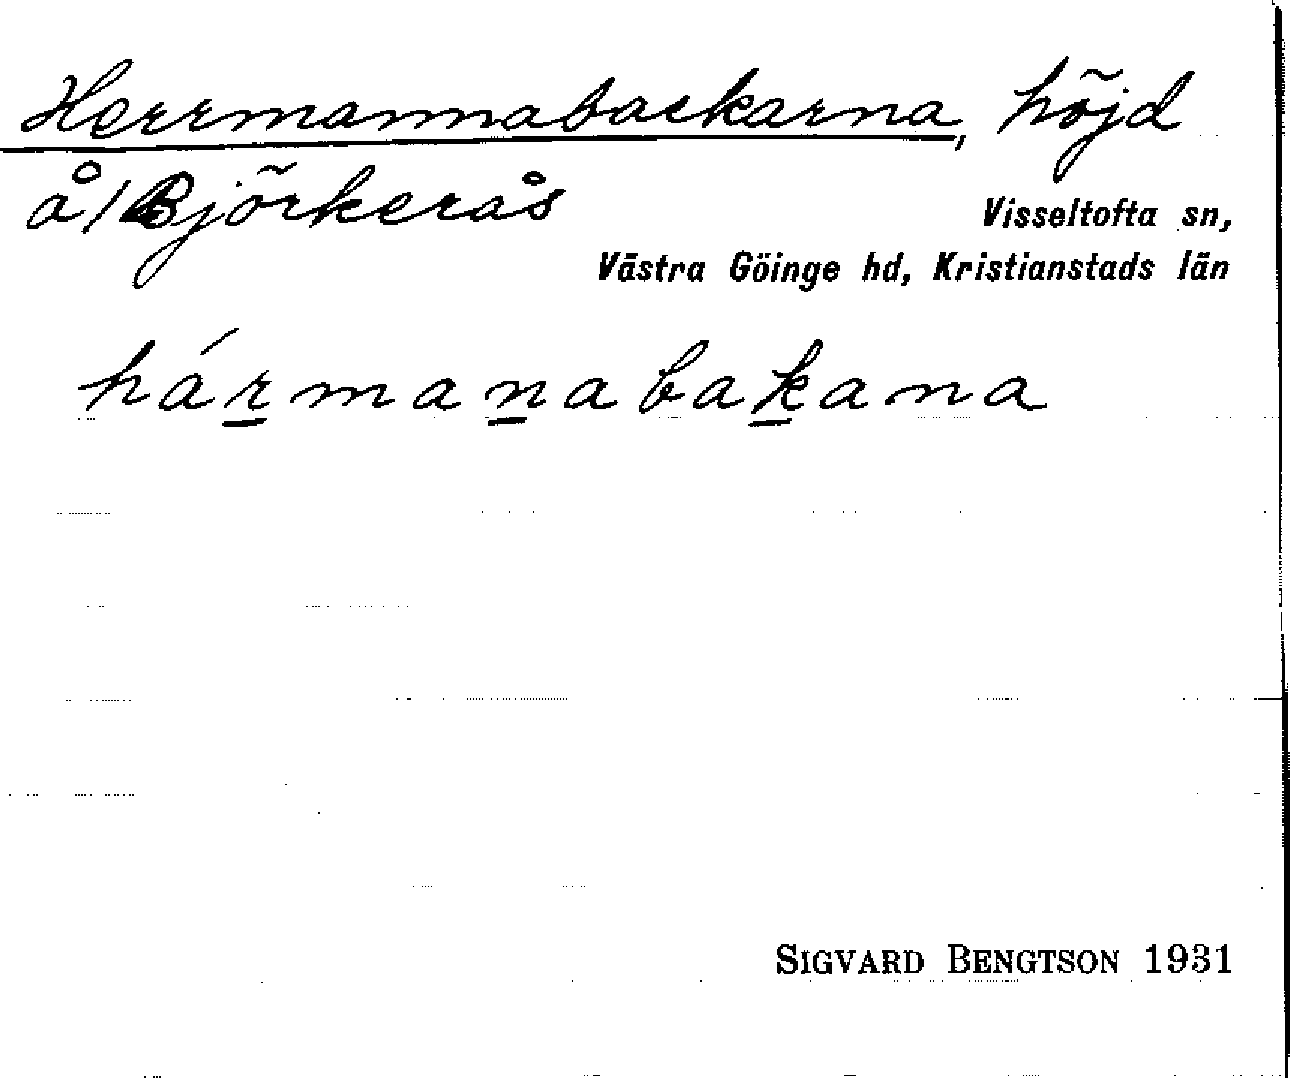 Herrmannabackarna, höjd
å/Björkerås
Visseltofta sn,
Västra Göinge hd, Kristianstads län
hármanabakana
SIGVARD BENGTSON 1931